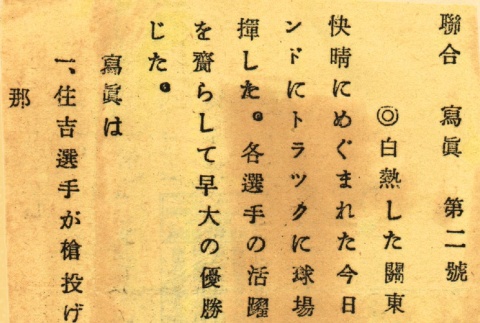 聯合 寫眞 第二號
◎白熱した關東
快晴にめぐまれた今日
ンドにトラツクに球場
揮した。各選手の活躍
を齎らして早大の優勝
じた。
寫眞は
一、住吉選手が槍投げ
那